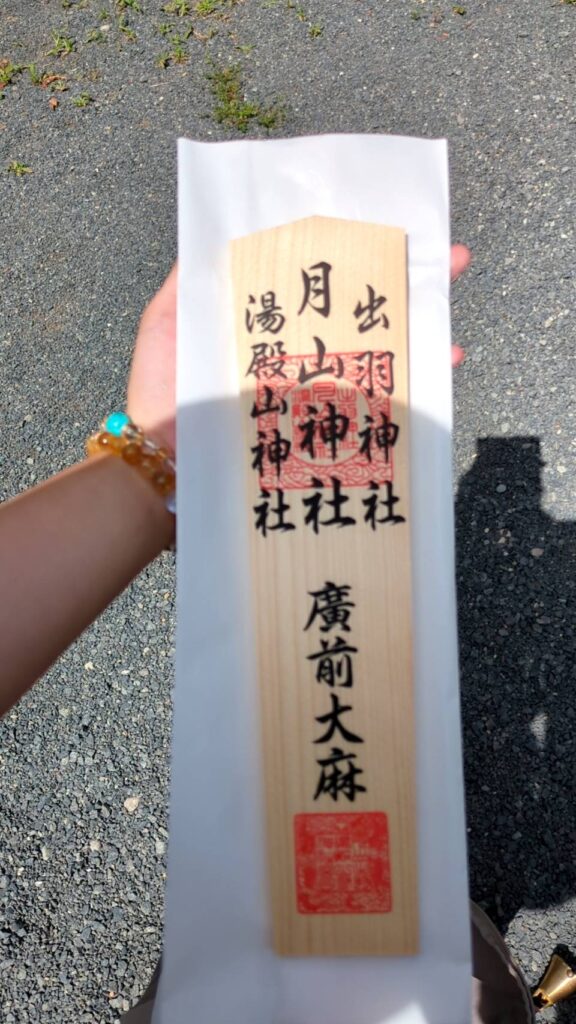 出羽神社
月山神社
湯殿山神社
廣前大麻